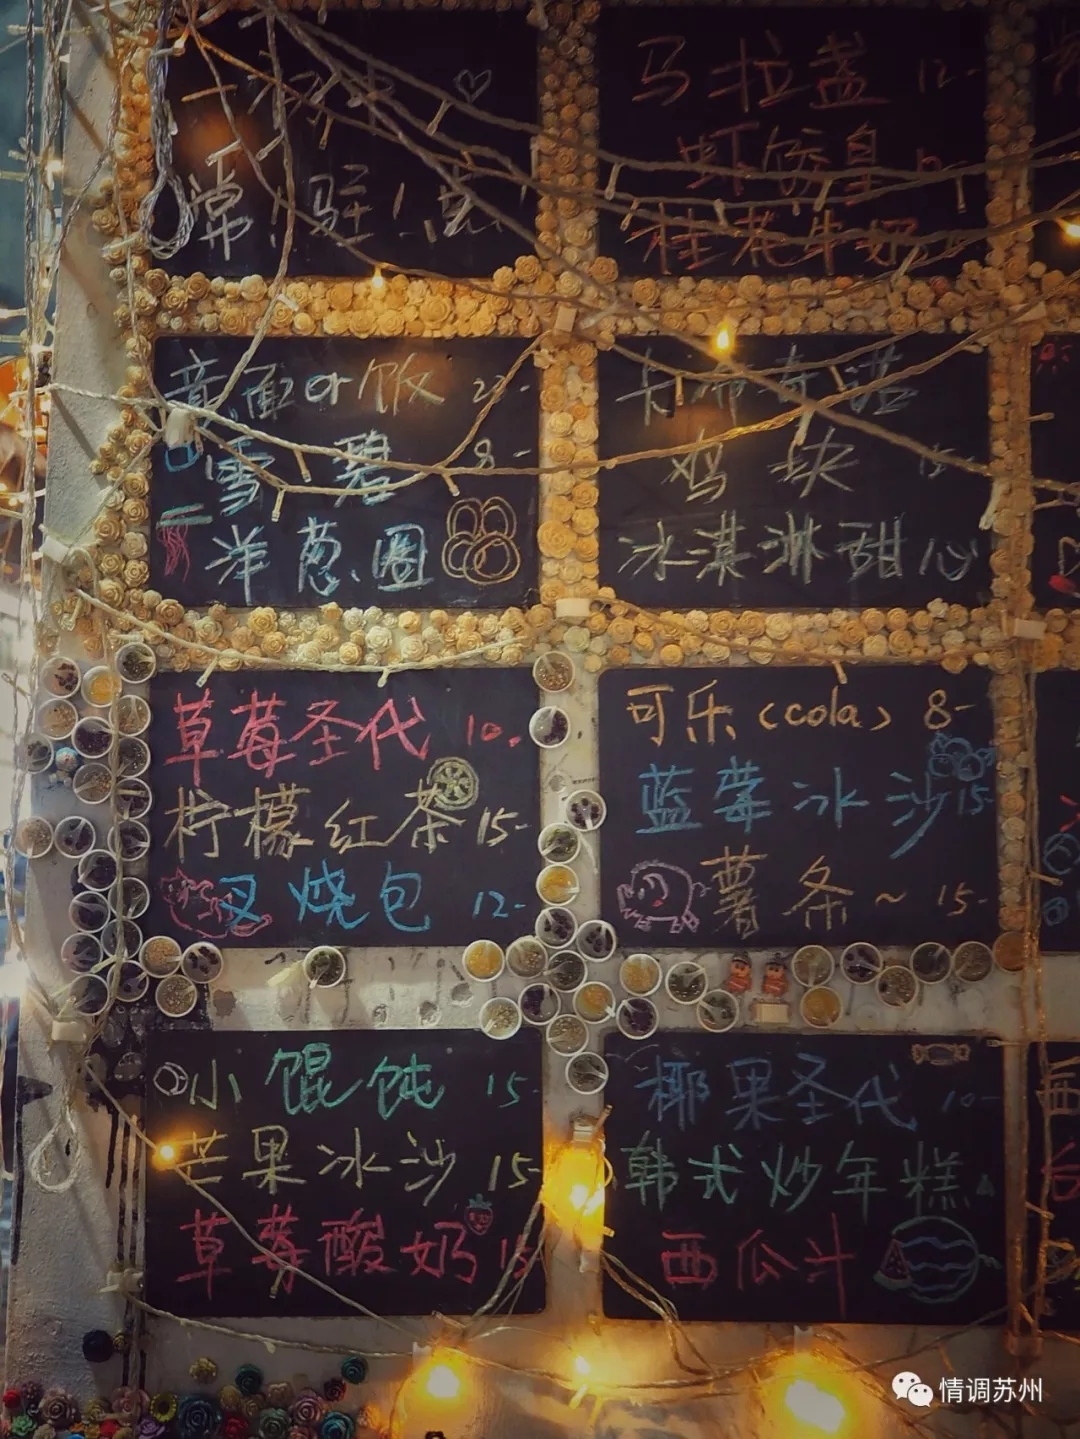 常驻!
马拉盏 12-
虾饺皇
桂花牛奶
意面or饭 22-
雪碧 8-
洋葱圈
卡布奇诺
鸡块 15-
冰淇淋甜心
草莓圣代 10.
柠檬红茶 15-
叉烧包 12-
可乐(cola) 8-
蓝莓冰沙 15-
薯条~ 15-
小馄饨 15-
芒果冰沙 15-
草莓酸奶 15
椰果圣代 10-
韩式炒年糕
西瓜斗
情调苏州